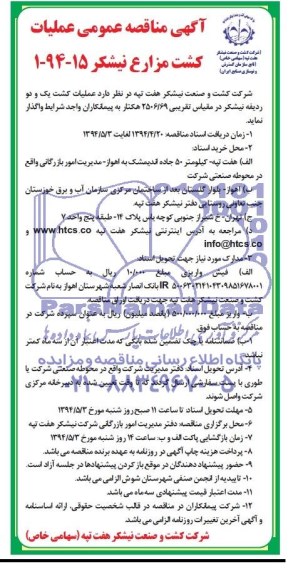 آگهی مناقصه عمومی عملیات
کشت مزارع نیشکر ۱۵-۹۴-۱
شرکت کشت و صنعت نیشکر
هفت تپه (سهامی خاص)
شرکت کشت و صنعت نیشکر هفت تپه در نظر دارد عملیات کشت یک و دو
ردیفه نیشکر در مقیاس تقریبی ۲۵۰۶/۶۹ هکتار به پیمانکاران واجد شرایط واگذار
نماید.
۱- زمان دریافت اسناد مناقصه: ۱۳۹۴/۴/۲۰ لغایت ۱۳۹۴/۵/۳
۲- محل خرید اسناد:
الف) هفت تپه- کیلومتر ۵۰ جاده اندیمشک به اهواز- مدیریت امور بازرگانی واقع
در محوطه صنعتی شرکت
ب) اهواز- بلوار گلستان بعد از ساختمان مرکزی سازمان آب و برق خوزستان
جنب تعاونی روستایی دفتر نیشکر هفت تپه.
ج) تهران- خ شیراز جنوبی کوچه یاس پلاک ۱۴- طبقه پنج واحد ۷
د) مراجعه به آدرس اینترنتی نیشکر هفت تپه www.htcs.co و
info@htcs.co
۳- مدارک مورد نیاز جهت تحویل اسناد:
الف) فیش واریزی مبلغ ۱۰/۰۰۰ ریال به حساب شماره
بانک انصار شعبه شهرستان اهواز به نام شرکت
کشت و صنعت نیشکر هفت تپه جهت دریافت اوراق مناقصه
ب- واریز مبلغ ۵۰۰/۰۰۰/۰۰۰ (پانصد میلیون) ریال به عنوان سپرده شرکت در
مناقصه به حساب فوق
ب- ضمانتنامه یا چک تضمین شده بانکی که مدت اعتبار آن از سه ماه کمتر
نباشد.
۴- آدرس تحویل اسناد: دفتر مدیریت شرکت واقع در محوطه صنعتی شرکت یا
طوری با پست سفارشی ارسال گردد که تا وقت تعیین شده به دبیرخانه مرکزی
شرکت واصل شوند.
۵- مهلت تحویل اسناد: تا ساعت ۱۱ صبح روز شنبه مورخ ۱۳۹۴/۵/۳
۶- محل برگزاری مناقصه: دفتر مدیریت امور بازرگانی شرکت نیشکر هفت تپه
۷- زمان بازگشایی پاکت الف و ب: ساعت ۱۴ روز شنبه مورخ ۱۳۹۴/۵/۳
۸- پرداخت هزینه چاپ آگهی در روزنامه به عهده برنده مناقصه می باشد.
۹- حضور پیشنهاد دهندگان در موقع باز کردن پیشنهادها در جلسه آزاد است.
۱۰- تاییدیه از انجمن صنفی شهرستان شوش الزامی می باشد.
۱۱- مدت اعتبار قیمت پیشنهادی سه ماه می باشد.
۱۲- شرکت پیمانکاران در مناقصه در قالب شخصیت حقوقی، ارائه اساسنامه
و آگهی آخرین تغییرات روزنامه الزامی می باشد.
شرکت کشت و صنعت نیشکر هفت تپه (سهامی خاص)
پایگاه اطلاع رسانی مناقصه و مزایده